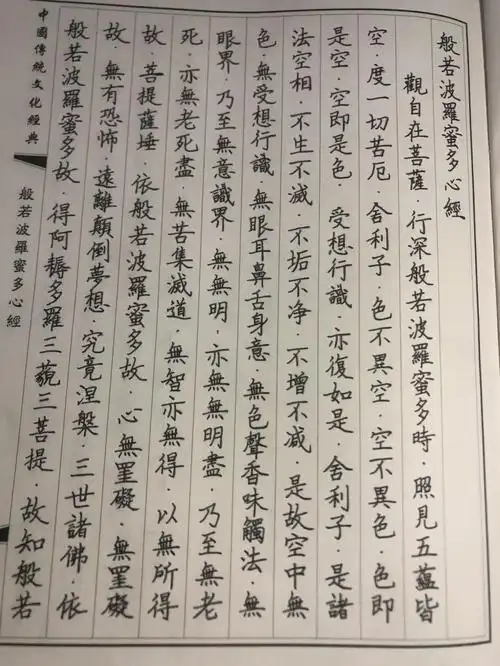 般若波羅蜜多心經
觀自在菩薩·行深般若波羅蜜多時·照見五蘊皆
空·度一切苦厄·舍利子·色不異空·空不異色·色即
是空·空即是色·受想行識·亦復如是·舍利子·是諸
法空相·不生不滅·不垢不净·不增不减·是故空中無
色·無受想行識·無眼耳鼻舌身意·無色聲香味觸法·無
眼界·乃至無意識界·無無明·亦無無明盡·乃至無老
死·亦無老死盡·無苦集滅道·無智亦無得·以無所得
故·菩提薩埵·依般若波羅蜜多故·心無罣礙·無罣礙
故·無有恐怖·遠離顛倒夢想·究竟涅槃·三世諸佛·依
般若波羅蜜多故·得阿耨多羅三藐三菩提·故知般若
中國傳統文化經典
般若波羅蜜多心經